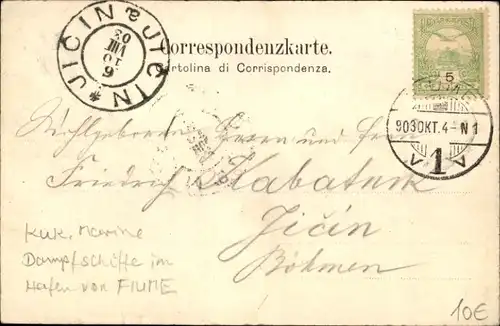 JICIN JICIN
6 10 VIII 03
Correspondenzkarte.
Cartolina di Corrispondenza.
5
903OKT.4-N1
1
Herrn und
Friedrich Kabatnik
Jičín
Böhmen
K.u.K. Marine
Dampfschiffe im
Hafen von FIUME
10€